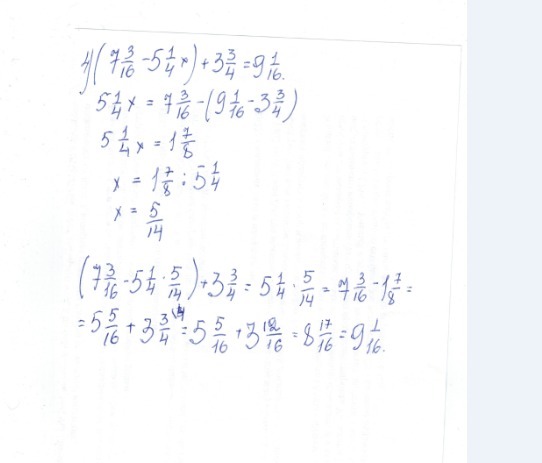 4) (7 3/16 - 5 1/4 x) + 3 3/4 = 9 1/16.
5 1/4 x = 7 3/16 - (9 1/16 - 3 3/4)
5 1/4 x = 1 7/8
x = 1 7/8 : 5 1/4
x = 5/14
(7 3/16 - 5 1/4 · 5/14) + 3 3/4 = 5 1/4 · 5/14 = 7 3/16 - 1 7/8 =
= 5 5/16 + 3 3/4 = 5 5/16 + 3 12/16 = 8 17/16 = 9 1/16.